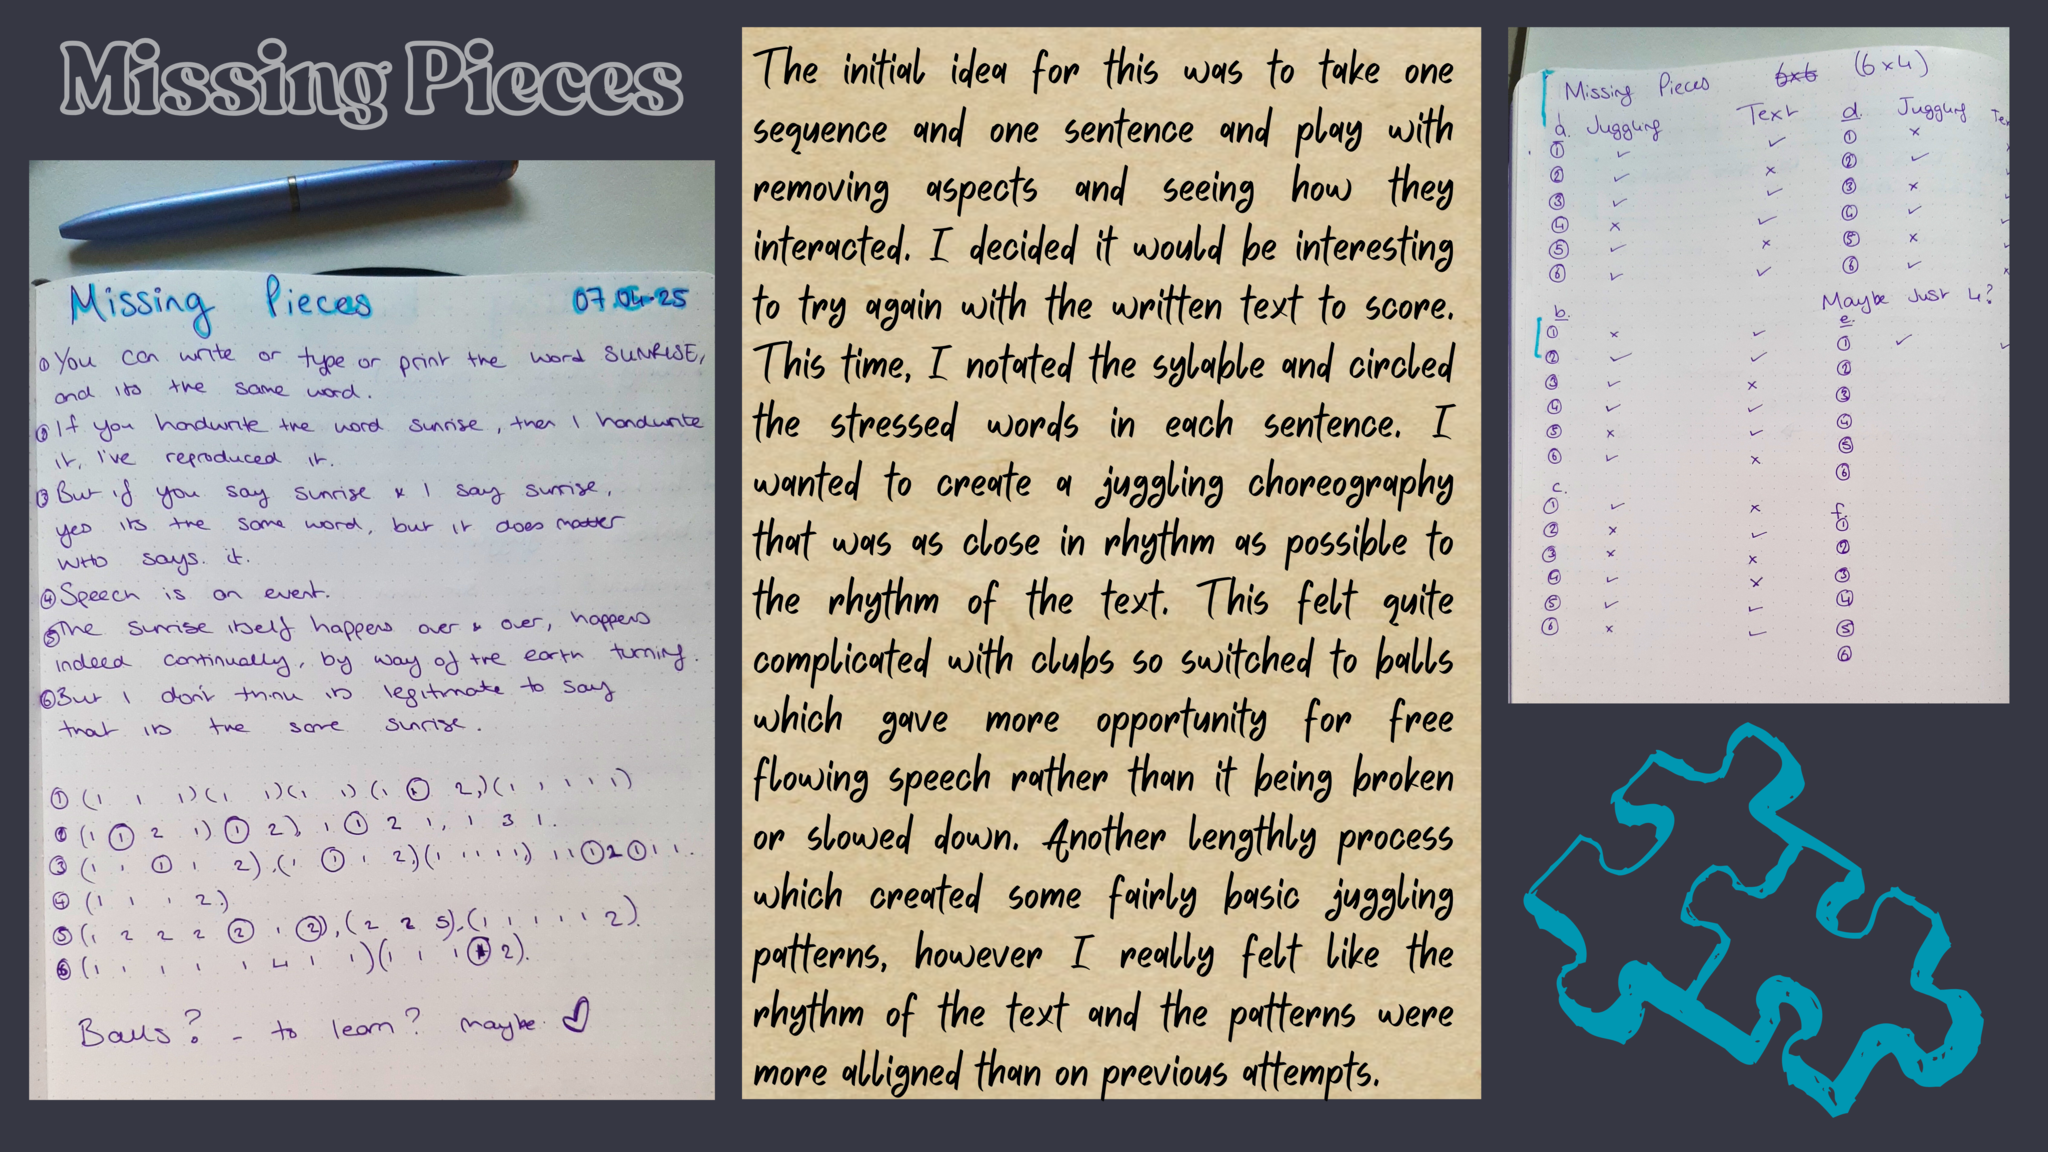 Missing Pieces
Missing Pieces 07.04.25
① You can write or type or print the word SUNRISE,
and its the same word.
② If you handwrite the word sunrise, then I handwrite
it, I've reproduced it.
③ But if you say sunrise & I say sunrise,
yes its the same word, but it does matter
WHO says. it.
④ Speech is an event.
⑤ The sunrise itself happens over & over, happens
indeed continually, by way of the earth turning.
⑥ But I don't think its legitmate to say
that its the same sunrise.
① (1 1 1) (1 1) (1 1) (1 ① 2,) (1 1 1 1 1)
② (1 ① 2 1) ① 2), 1 ① 2 1, 1 3 1.
③ (1 1 ① 1 2), (1 ① 1 2,) (1 1 1 1 1,) 1 1 ① 2 ① 1 1.
④ (1 1 1 2.)
⑤ (1 2 2 2 ② 1 ②), (2 2 5), (1 1 1 1 1 2).
⑥ (1 1 1 1 1 4 1 1) (1 1 1 2).
Balls? - to learn? maybe ♡
The initial idea for this was to take one
sequence and one sentence and play with
removing aspects and seeing how they
interacted. I decided it would be interesting
to try again with the written text to score.
This time, I notated the sylable and circled
the stressed words in each sentence. I
wanted to create a juggling choreography
that was as close in rhythm as possible to
the rhythm of the text. This felt quite
complicated with clubs so switched to balls
which gave more opportunity for free
flowing speech rather than it being broken
or slowed down. Another lengthly process
which created some fairly basic juggling
patterns, however I really felt like the
rhythm of the text and the patterns were
more alligned than on previous attempts.
Missing Pieces 6x6 (6x4)
a. Juggling Text
① ✓ ✓
② ✓ ×
③ ✓ ✓
④ × ✓
⑤ ✓ ×
⑥ ✓ ✓
b.
① × ✓
② ✓ ✓
③ ✓ ×
④ ✓ ✓
⑤ × ✓
⑥ ✓ ×
c.
① ✓ ×
② × ✓
③ × ×
④ ✓ ×
⑤ ✓ ✓
⑥ × ✓
d. Juggling
① ×
② ✓
③ ×
④ ✓
⑤ ×
⑥ ✓
Maybe Just 4?
e.
① ✓ ✓
②
③
④
⑤
⑥
f.
①
②
③
④
⑤
⑥